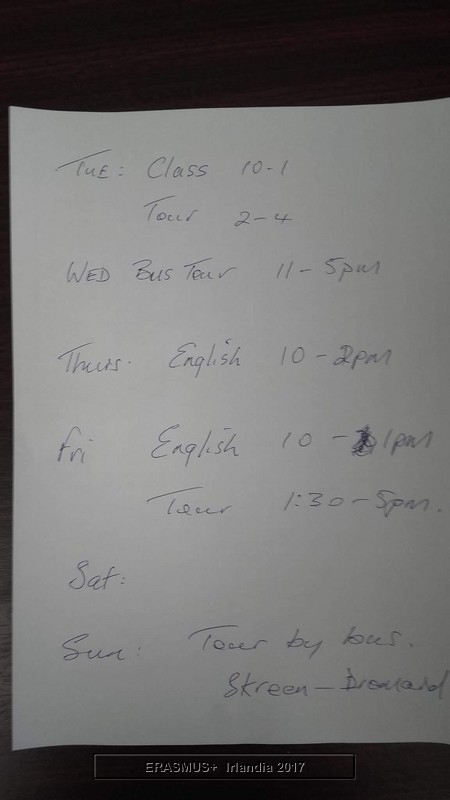 TUE: Class 10-1
Tour 2-4
WED Bus Tour 11-5pm
Thurs. English 10-2pm
Fri English 10-1pm
Tour 1:30-5pm.
Sat:
Sun: Tour by bus.
Skreen-Dromard
ERASMUS+ Irlandia 2017